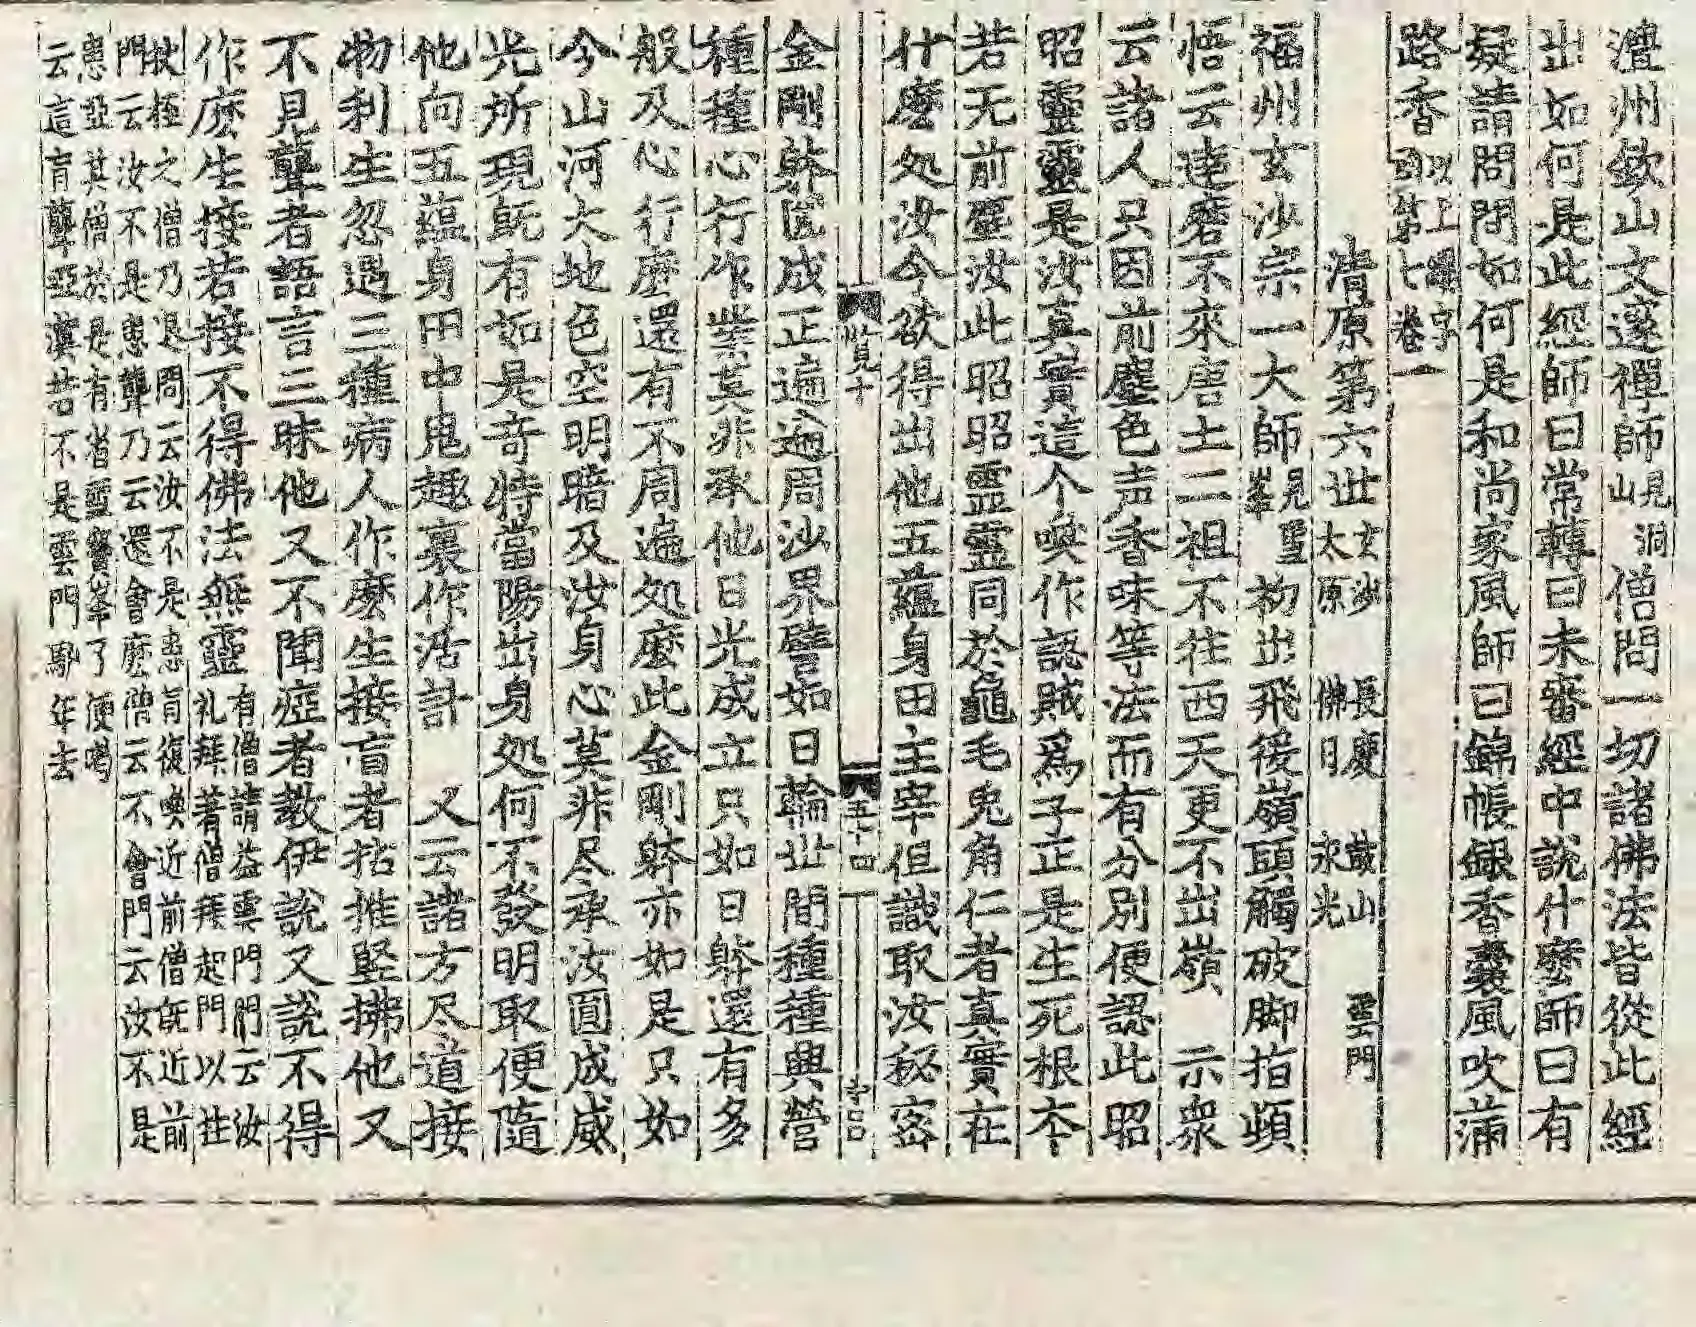 澧州欽山文邃禪師見洞山 僧問一切諸佛法皆從此經
出如何是此經師曰常轉曰未審經中說什麽師曰有
疑請問問如何是和尚家風師曰錦帳銀香囊風吹滿
路香以上 字函第七卷
清原第六世玄沙 太原 長慶 佛日 鼓山 永光 雲門
福州玄沙宗一大師見雪峯 初出飛猨嶺頭觸破脚指頓
悟云達磨不來唐土二祖不往西天更不出嶺 示衆
云諸人只因前塵色声香味等法而有分別便認此昭
昭靈靈是汝真實這个喚作認賊爲子正是生死根夲
若无前塵汝此昭昭靈靈同於龜毛兎角仁者真實在
什麽処汝今欲得出他五蘊身田主宰但識取汝秘密
覽十
五十四
金剛躰匧成正遍遍周沙界譬如日輪世間種種興營
種種心行作業莫非承他日光成立只如日躰還有多
般及心行麽還有不周遍処麽此金剛躰亦如是只如
今山河大地色空明暗及汝身心莫非尽承汝圓成威
光所現旣有如是奇特當陽出身処何不發明取便隨
他向五蘊身田中鬼趣裏作活計 又云諸方尽道接
物利生忽遇三種病人作麽生接盲者拈推竪拂他又
不見聾者語言三昧他又不聞瘂者教伊說又說不得
作麽生接若接不得佛法無靈有僧請益雲門門云汝
礼拜著僧拜起門以拄
杖 之僧乃退問云汝不是患盲復喚近前僧旣近前
門云汝不是患聾乃云還會麽僧云不會門云汝不是
患啞其僧於是有省 雪峯了便喝
云這盲聾啞漢若不是雲門驢年去